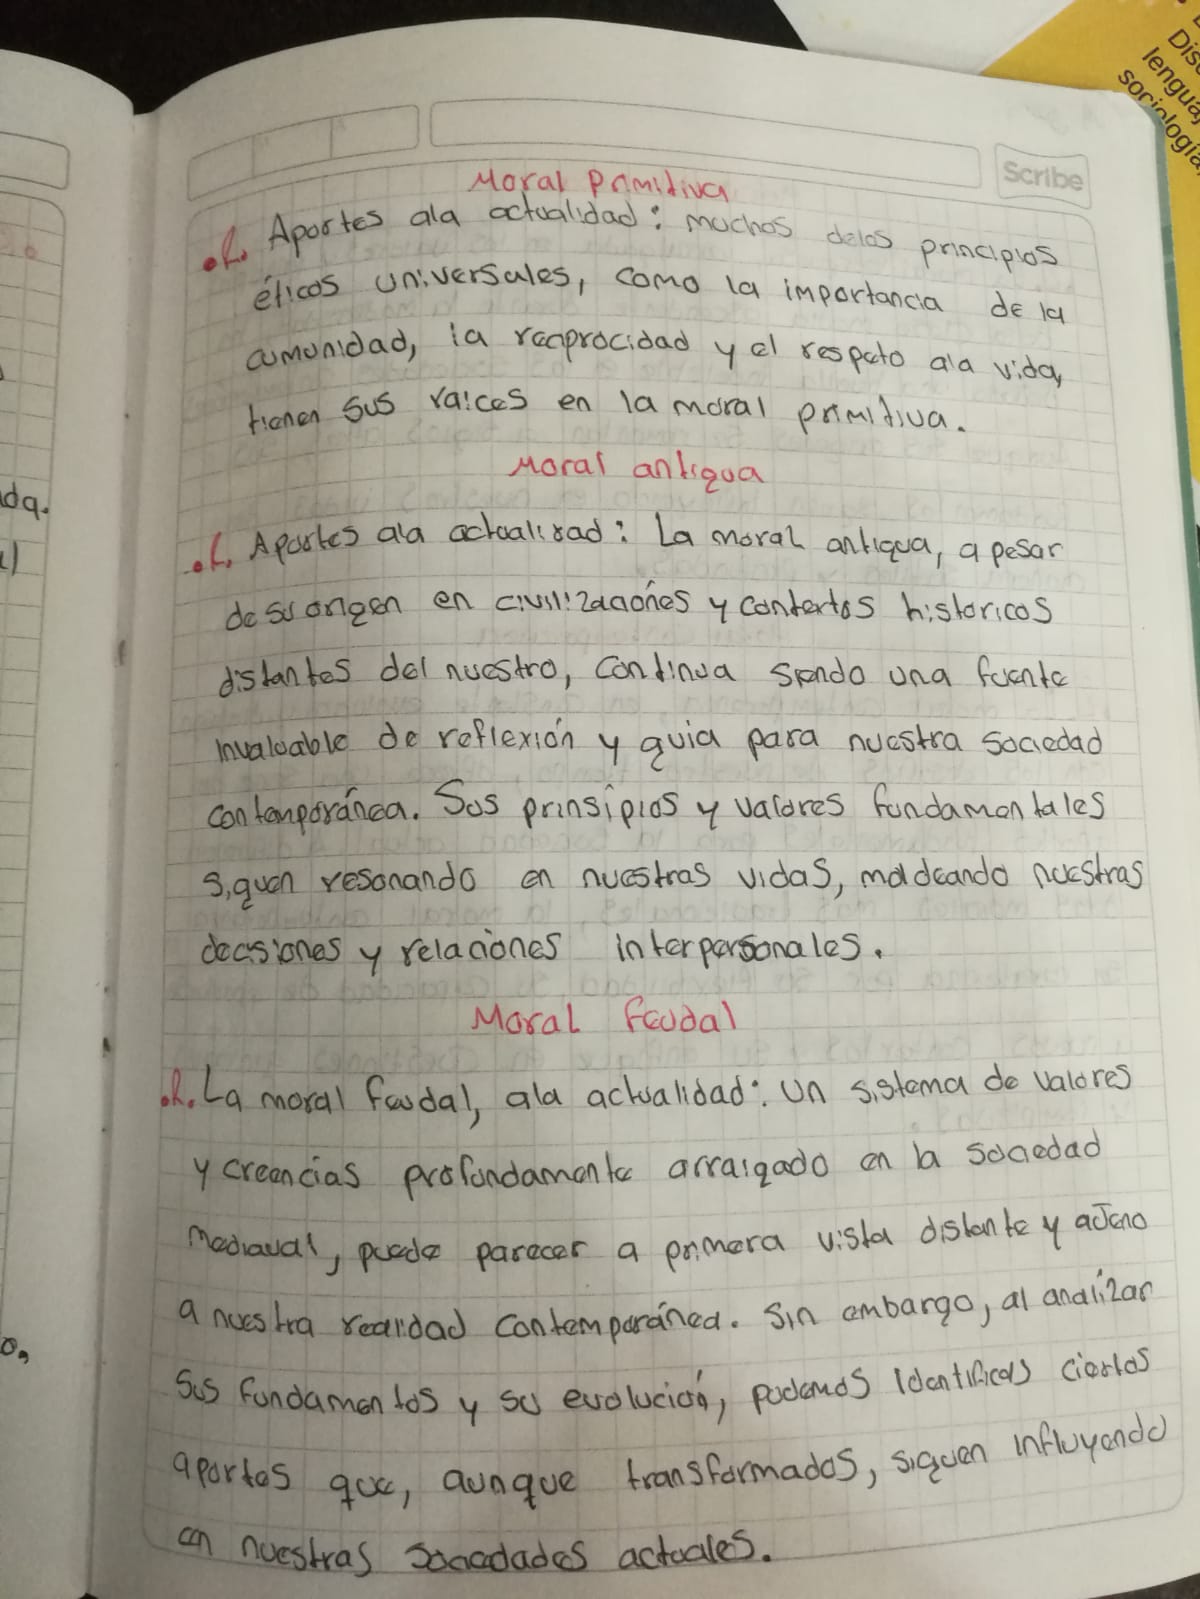 Dis
lengua,
sociología,
Scribe
Moral Primitiva
.R. Aportes ala actualidad: muchos delos principios
éticos universales, como la importancia de la
comunidad, la reciprocidad y el respeto ala vida,
tienen sus raices en la moral primitiva.
Moral antigua
.R. Aportes ala actualidad: La moral antigua, a pesar
de su origen en civilizaciones y contextos historicos
distantes del nuestro, continua siendo una fuente
invaluable de reflexión y guia para nuestra sociedad
contemporánea. Sus prinsipios y valores fundamentales
siguen resonando en nuestras vidas, moldeando nuestras
decisiones y relaciones interpersonales.
Moral feudal
.R. La moral feudal, ala actualidad: Un sistema de valores
y creencias profundamente arraigado en la sociedad
medieval, puede parecer a primera vista distante y ajeno
a nuestra realidad contemporánea. Sin embargo, al analizar
sus fundamentos y su evolución, podemos identificar ciertos
aportes que, aunque transformados, siguen influyendo
en nuestras sociedades actuales.